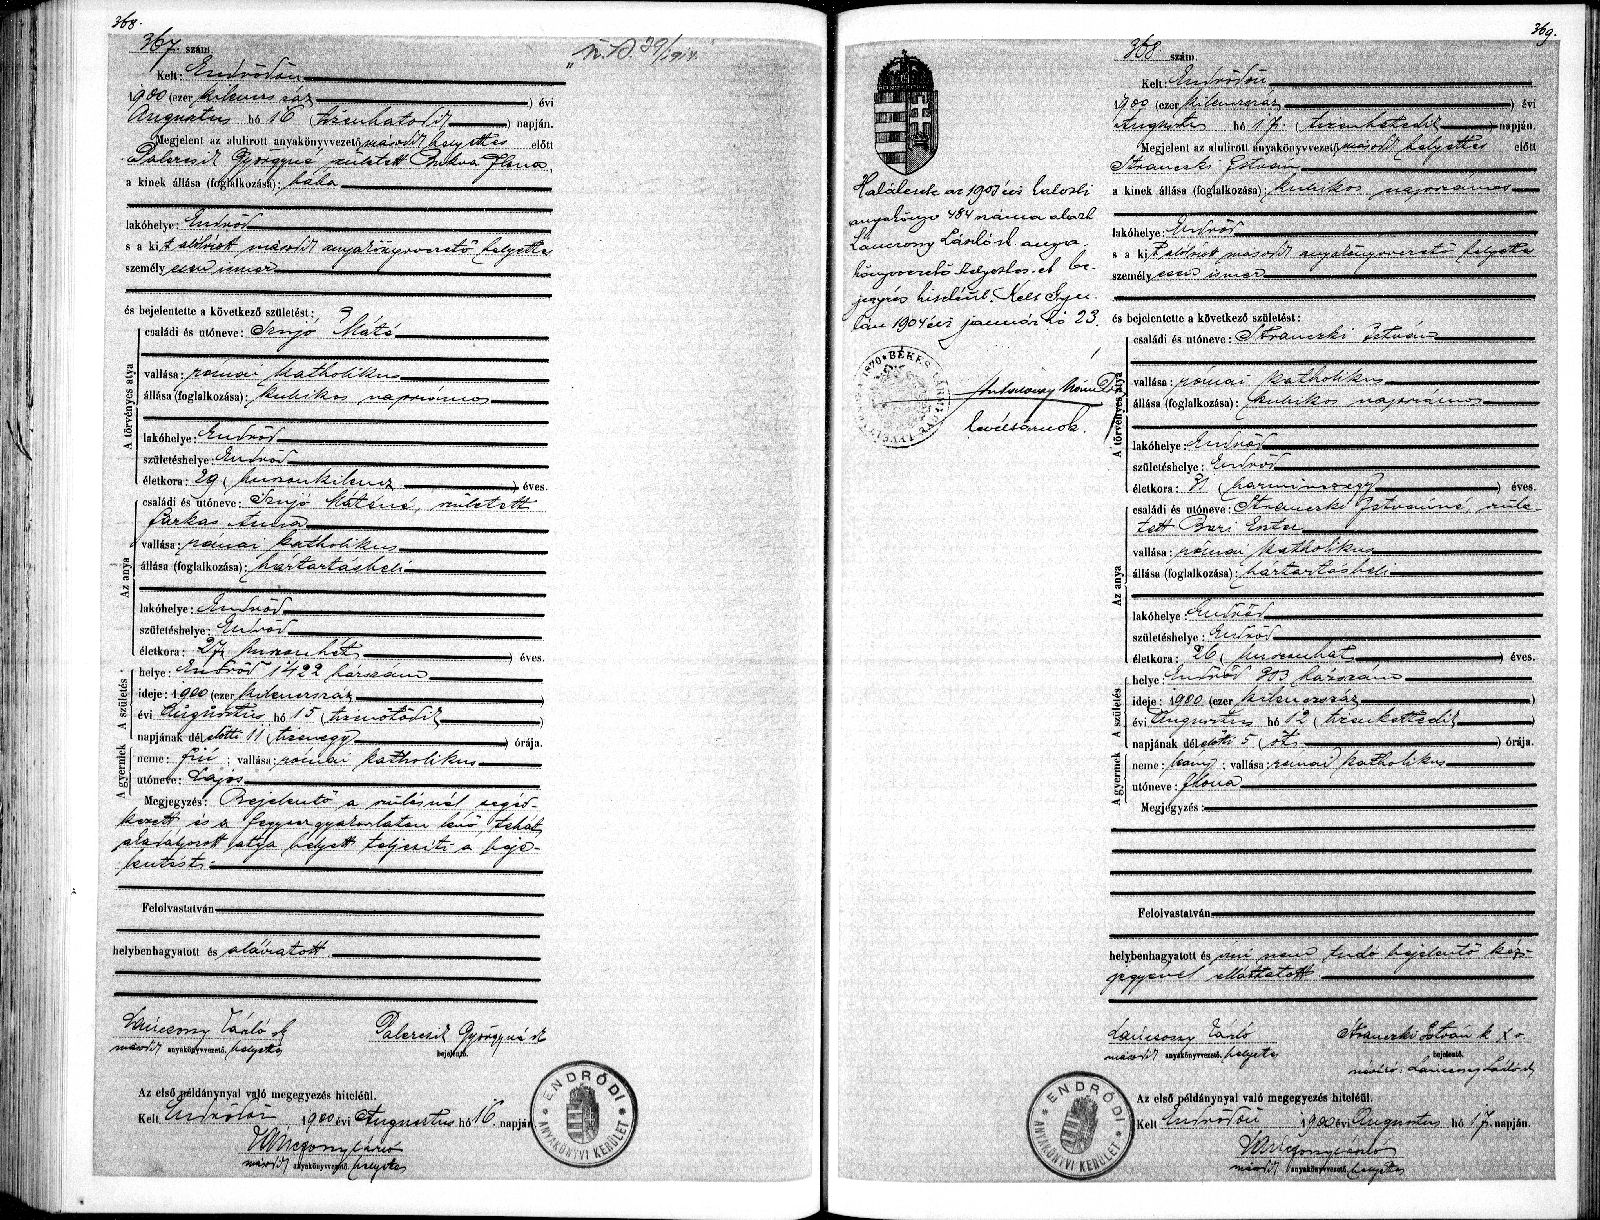 368.
367. szám.
Kelt: Endrődön
1900 (ezer kilencszáz) évi
Augusztus hó 16 (tizenhatodik) napján.
Megjelent az alulirott anyakönyvvezető második helyettes előtt
Palercsik Györgyné született Ilona,
a kinek állása (foglalkozása): bába
lakóhelye: Endrőd
s a kit alólirott második anyakönyvvezető helyettes
személyesen ismer
és bejelentette a következő születést:
A törvényes atya
családi és utóneve: Szujó Máté
vallása: római katholikus
állása (foglalkozása): kubikos napszámos
lakóhelye: Endrőd
születéshelye: Endrőd
életkora: 29 (huszonkilencz) éves.
Az anya
családi és utóneve: Szujó Máténé, született
Farkas Anna
vallása: római katholikus
állása (foglalkozása): háztartásbeli
lakóhelye: Endrőd
születéshelye: Endrőd
életkora: 27 huszonhét) éves.
A születés
helye: Endrőd 1422 házszám
ideje: 1900 (ezer kilenczszáz
évi Augusztus hó 15 (tizenötödik)
napjának délelőtti 11 (tizenegy) órája.
A gyermek
neme: fiú; vallása: római katholikus
utóneve: Lajos
Megjegyzés: Bejelentő a szülésnél segéd-
kezett és a fegyvergyakorlaton lévő, tehát
akadályozott atya helyett teljesiti a beje-
lentést.
Felolvastatván
helybenhagyatott és aláiratott
Lánczony László sk
Palercsik Györgyné sk
második anyakönyvvezető helyettes
bejelentő.
Az első példánynyal való megegyezés hiteléül.
Kelt Endrődön 1900 évi Augusztus hó 16 napján.
Lánczony László
második anyakönyvvezető helyettes
ENDRŐDI ANYAKÖNYVI KERÜLET
Halálesete az 1903 évi halotti
anyakönyv 484 száma alatt
Lánczony László sk. anya-
könyvvezető helyettes. et be-
jegyzés hiteléül. Kelt Gyu-
lán 1904 évi január hó 23.
levéltárnok.
369.
368 szám.
Kelt: Endrődön
1900 (ezer kilenczszáz) évi
Augusztus hó 17. (tizenhetedik) napján.
Megjelent az alulirott anyakönyvvezető második helyettes előtt
Stranczki István
a kinek állása (foglalkozása): kubikos napszámos
lakóhelye: Endrőd
s a kit alólirott második anyakönyvvezető helyettes
személyesen ismer
és bejelentette a következő születést:
A törvényes atya
családi és utóneve: Stranczki István
vallása: római katholikus
állása (foglalkozása): kubikos napszámos
lakóhelye: Endrőd
születéshelye: Endrőd
életkora: 31 (harminczegy) éves.
Az anya
családi és utóneve: Stranczki Istvánné, szüle-
tett Bari Eszter
vallása: római katholikus
állása (foglalkozása): háztartásbeli
lakóhelye: Endrőd
születéshelye: Endrőd
életkora: 26 (huszonhat) éves.
A születés
helye: Endrőd 303 házszám
ideje: 1900 (ezer kilenczszáz)
évi Augusztus hó 12 (tizenkettedik)
napjának délelőtti 5 (öt) órája.
A gyermek
neme: leány; vallása: római katholikus
utóneve: Ilona
Megjegyzés:
Felolvastatván
helybenhagyatott és irni nem tudó bejelentő kéz-
jegyével elláttatott
Lánczony László
Stranczki István k x v
második anyakönyvvezető helyettes
bejelentő.
névíró: Lánczony László sk
Az első példánynyal való megegyezés hiteléül.
Kelt Endrődön 1900 évi Augusztus hó 17. napján.
Lánczony László
második anyakönyvvezető helyettes
ENDRŐDI ANYAKÖNYVI KERÜLET